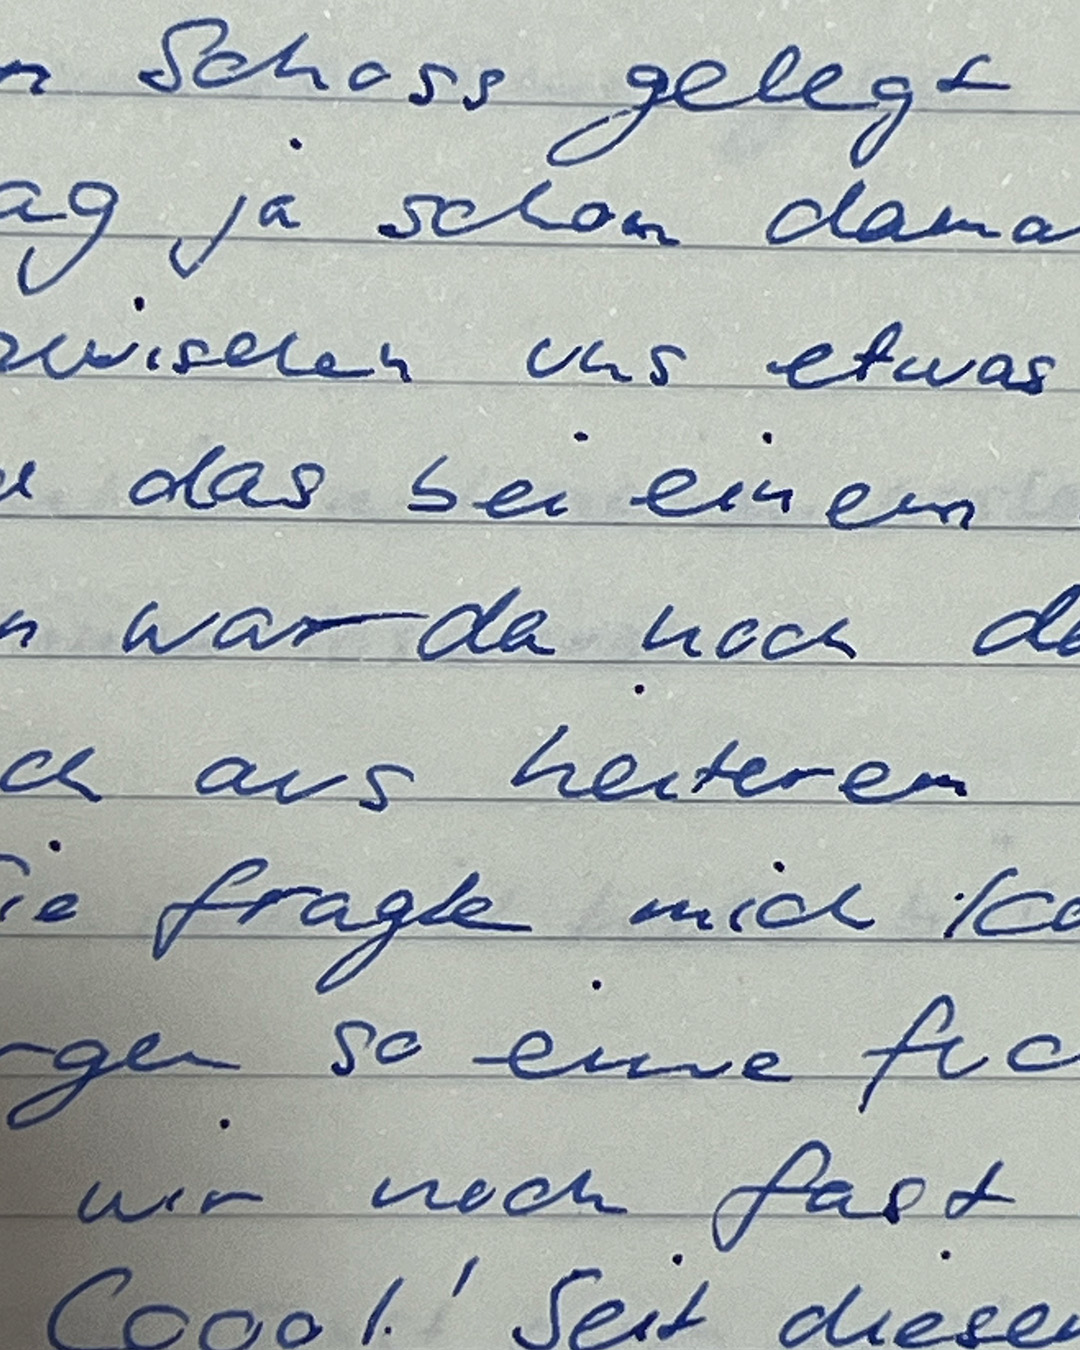 n Schoss gelegt
ag ja schon dama
zwischen uns etwas
das bei einem
n war da noch da
ch aus heiterem
Sie fragte mich ko
rgen so eine fuc
wir noch fast
Coool! Seit diesem